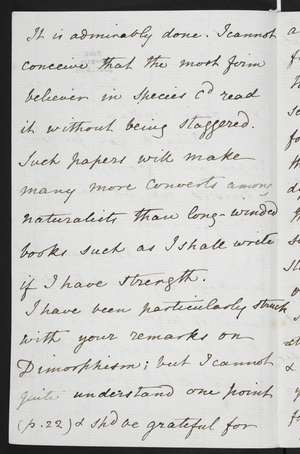 It is admirably done. I cannot
conceive that the most firm
believer in Species cd read
it without being staggered.
Such papers will make
many more converts among
naturalists than long-winded
books such as I shall write
if I have strength.
I have been particularly struck
with your remarks on
Dimorphism; but I cannot
quite understand one point
(p. 22) & shd be grateful for